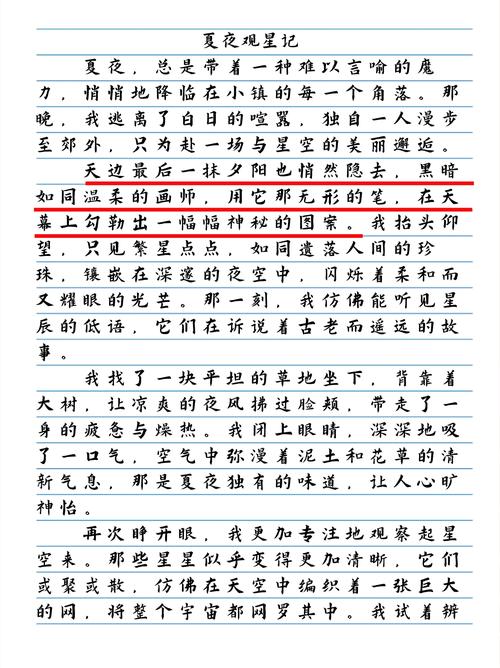 夏夜观星记
夏夜，总是带着一种难以言喻的魔
力，悄悄地降临在小镇的每一个角落。那
晚，我逃离了白日的喧嚣，独自一人漫步
至郊外，只为赴一场与星空的美丽邂逅。
天边最后一抹夕阳也悄然隐去，黑暗
如同温柔的画师，用它那无形的笔，在天
幕上勾勒出一幅幅神秘的图案。我抬头仰
望，只见繁星点点，如同遗落人间的珍
珠，镶嵌在深邃的夜空中，闪烁着柔和而
又耀眼的光芒。那一刻，我仿佛能听见星
辰的低语，它们在诉说着古老而遥远的故
事。
我找了一块平坦的草地坐下，背靠着
大树，让凉爽的夜风拂过脸颊，带走了一
身的疲惫与燥热。我闭上眼睛，深深地吸
了一口气，空气中弥漫着泥土和花草的清
新气息，那是夏夜独有的味道，让人心旷
神怡。
再次睁开眼，我更加专注地观察起星
空来。那些星星似乎变得更加清晰，它们
或聚或散，仿佛在天空中编织着一张巨大
的网，将整个宇宙都网罗其中。我试着辨